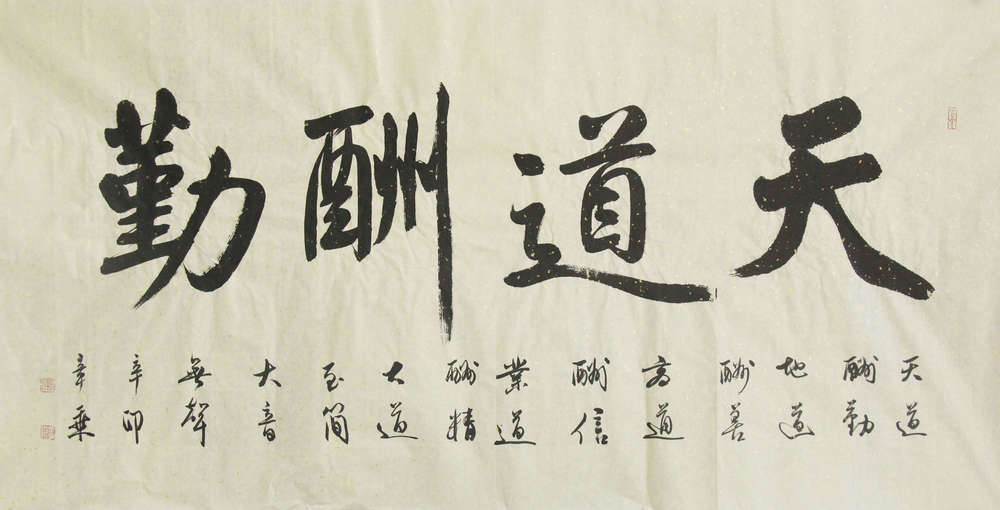 天道酬勤
天道
酬勤
地道
酬善
商道
酬信
業道
酬精
大道
至簡
大音
無聲
辛卯